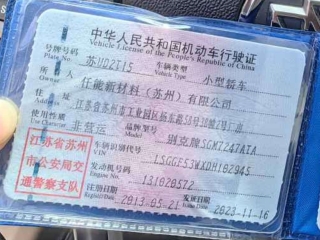 中华人民共和国机动车行驶证
Vehicle License of the People's Republic of China
号牌号码 Plate No. 苏UD2T15 车辆类型 Vehicle Type 小型轿车
所有人 Owner 任能新材料(苏州)有限公司
住址 江苏省苏州市工业园区杨东路58号
使用性质 Use Character 非营运 品牌型号 Model 别克牌SGM7247ATA
江苏省苏州
市公安局交
通警察支队
车辆识别代号
发动机号码 Engine No. 131020572
注册日期 2013-05-21 发证日期 2023-11-16